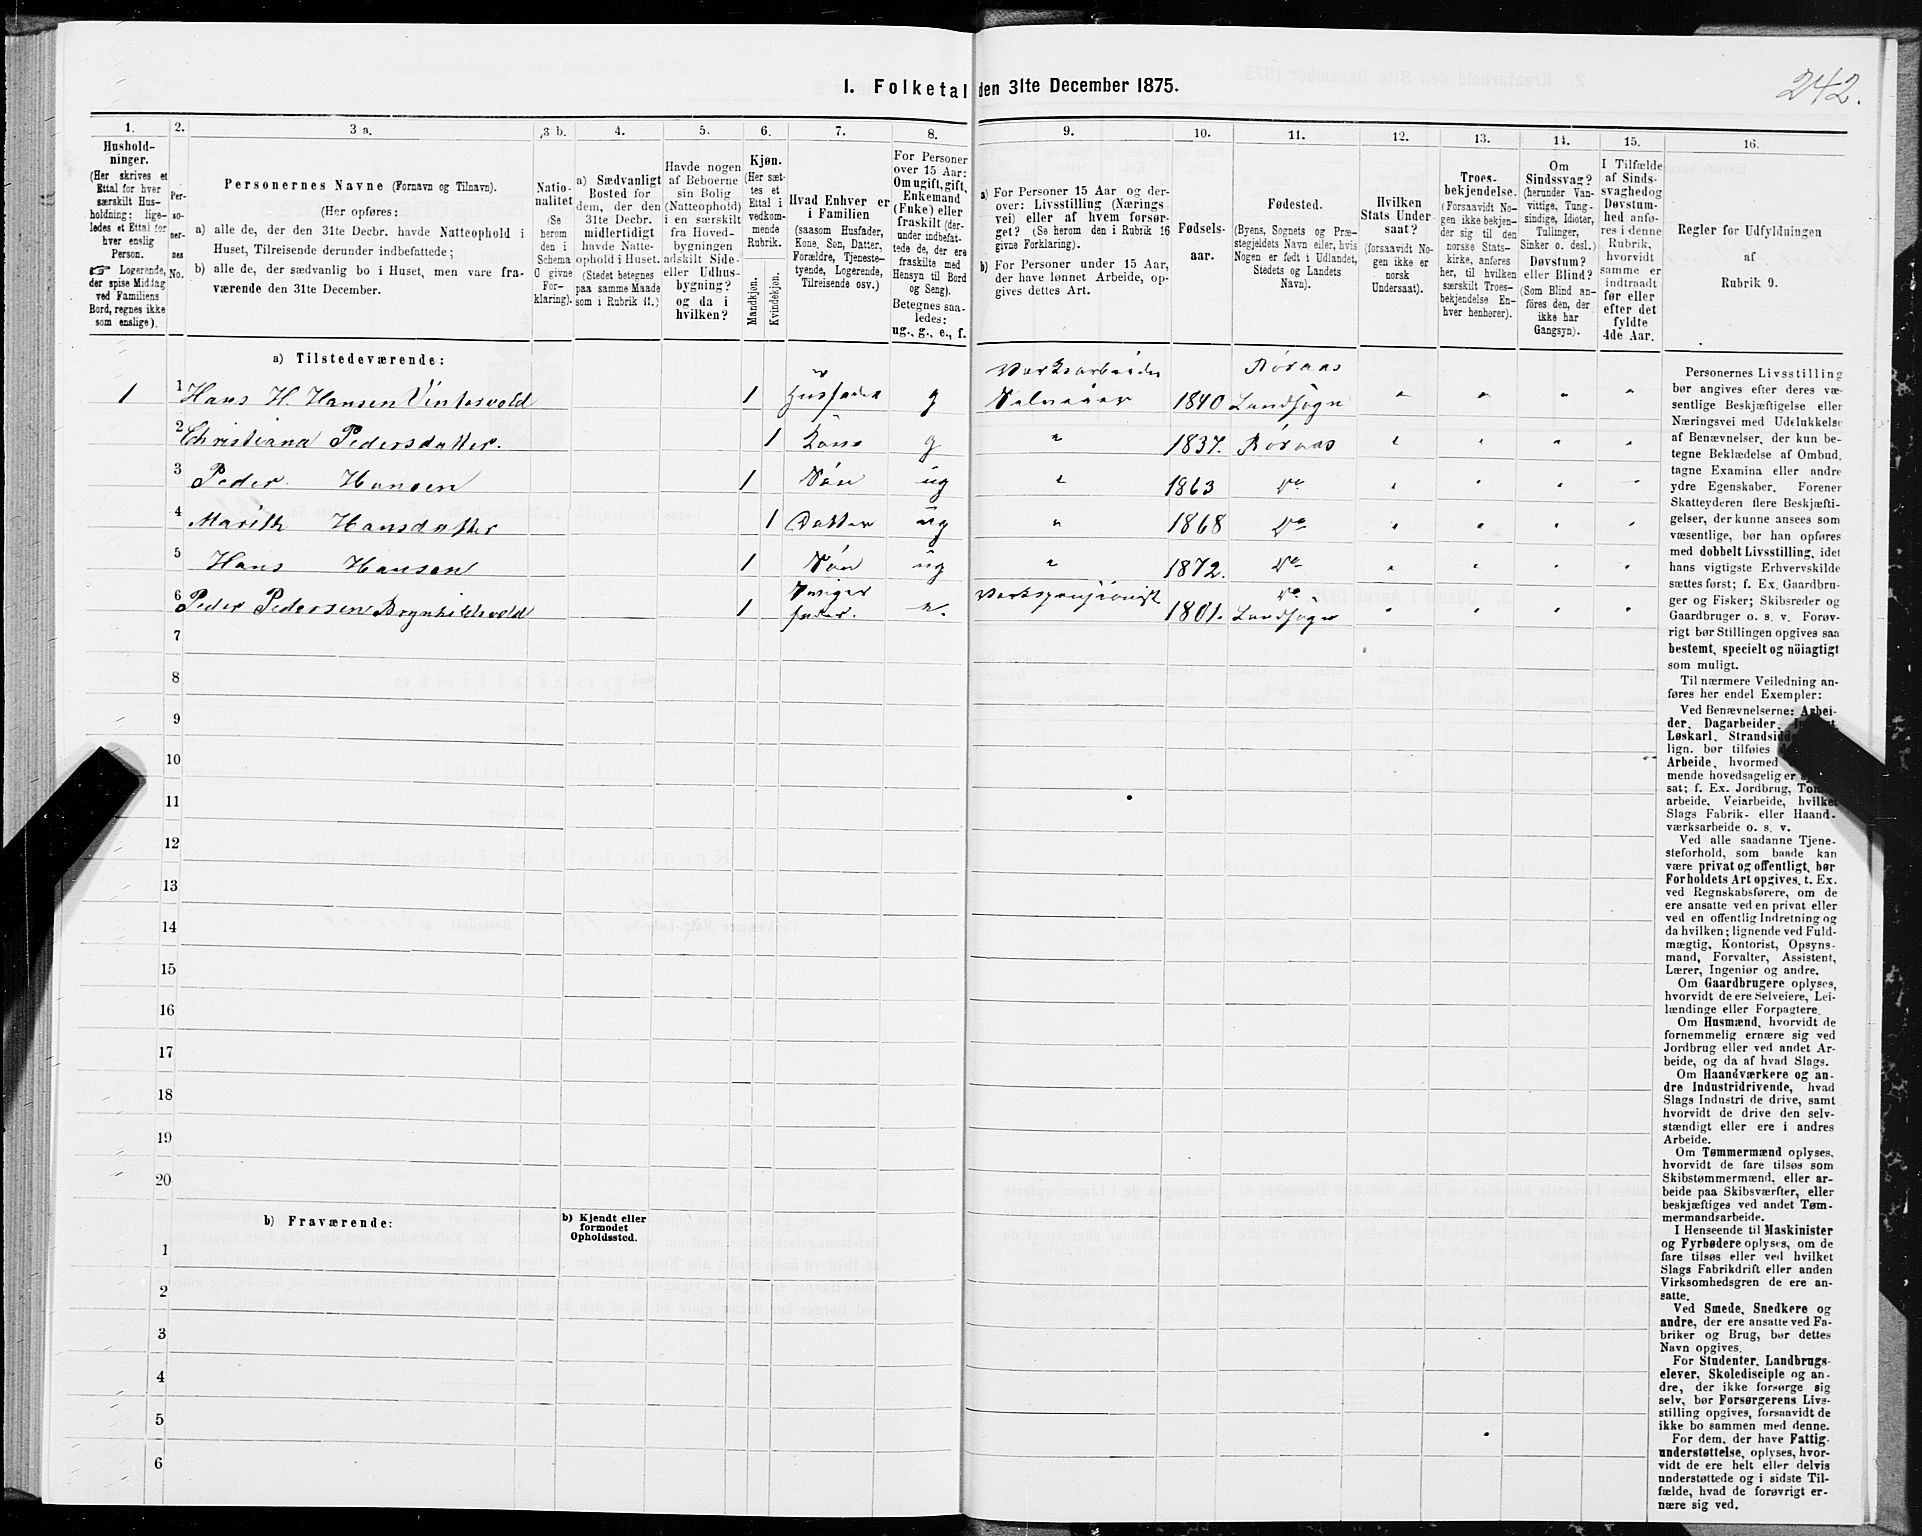 I. Folketal den 31te December 1875.
242.
1.
Hushold-
ninger.
(Her skrives et
Ettal for hver
særskilt Hus-
holdning; lige-
ledes et Ettal for
hver enslig
Person.
☞ Logerende,
der spise Middag
ved Familiens
Bord, regnes ikke
som enslige).
2.
Per-
so-
ner-
nes
No.
3 a.
Personernes Navne (Fornavn og Tilnavn).
(Her opføres:
a) alle de, der den 31te Decbr. havde Natteophold i
Huset, Tilreisende derunder indbefattede;
b) alle de, der sædvanlig bo i Huset, men vare fra-
værende den 31te December.
3 b.
Natio-
nalitet
(Se
herom
den i
Schema
C givne
For-
klaring).
4.
a) Sædvanligt
Bosted for
dem, der den
31te Decbr.
midlertidigt
havde Natte-
ophold i Huset.
(Stedet betegnes
paa samme Maade
som i Rubrik 11.)
5.
Havde nogen
af Beboerne
sin Bolig
(Natteophold)
i en særskilt
fra Hoved-
bygningen
adskilt Side-
eller Udhus-
bygning?
og da i
hvilken?
6.
Kjøn.
(Her sæt-
tes et
Ettal i
vedkom-
mende
Rubrik.
Mandkjøn.
Kvindekjøn.
7.
Hvad Enhver er
i Familien
(saasom Husfader,
Kone, Søn, Datter,
Forældre, Tjeneste-
tyende, Logerende,
Tilreisende osv.)
8.
For Personer
over 15 Aar:
Om ugift, gift,
Enkemand
(Enke) eller
fraskilt (der-
under indbefat-
tede de, der ere
fraskilte med
Hensyn til Bord
og Seng).
Betegnes saa-
ledes:
ug., g., e., f.
9.
a) For Personer 15 Aar og der-
over: Livsstilling (Nærings
vei) eller af hvem forsør-
get? (Se herom den i Rubrik 16
givne Forklaring).
b) For Personer under 15 Aar,
der have lønnet Arbeide, op-
gives dettes Art.
10.
Fødsels-
aar.
11.
Fødested.
(Byens, Sognets og Præ-
stegjeldets Navn eller, hvis
Nogen er født i Udlandet,
Stedets og Landets
Navn).
12.
Hvilken
Stats Under-
saat?
(forsaavidt No-
gen ikke er
norsk
Undersaat).
13.
Troes-
bekjendelse.
(Forsaavidt No-
gen ikke bekjen-
der sig til den
norske Stats-
kirke, anføres
her, til hvilken
særskilt Troes-
bekjendelse En-
hver henhører).
14.
Om
Sindssvag?
(herunder Van-
vittige, Tung-
sindige, Idioter,
Tullinger,
Sinker o. desl.)
Døvstum?
eller Blind?
(Som Blind an-
føres den, der
ikke har
Gangsyn).
15.
I Tilfælde
af Sinds-
svaghed og
Døvstum-
hed anfø-
res i denne
Rubrik,
hvorvidt
samme er
indtraadt
før eller
efter det
fyldte
4de Aar.
16.
Regler for Udfyldningen
af
Rubrik 9.
a) Tilstedeværende:
1 1 Hans H. Hansen Vintervold 1 Husfader g Verksarbeider Selveier 1840 Røraas Landsogn " " " "
2 Christiana Pedersdatter. 1 Kone g " 1837. Røraas " " " "
3 Peder Hansen 1 Søn ug " 1863 Do " " " "
4 Marith Hansdatter 1 Datter ug " 1868 Do " " " "
5 Hans Hansen 1 Søn ug " 1872. Do " " " "
6 Peder Pedersen Brynhildsvold 1 Sviger fader. e. Verkspensionist 1801. Do Landsogn " " " "
7
8
9
10
11
12
13
14
15
16
17
18
19
20
b) Fraværende:
b) Kjendt eller
formodet
Opholdssted.
1
2
3
4
5
6
Personernes Livsstilling
bør angives efter deres væ-
sentlige Beskjæftigelse eller
Næringsvei med Udelukkelse
af Benævnelser, der kun be-
tegne Beklædelse af Ombud,
tagne Examina eller andre
ydre Egenskaber. Forener
Skatteyderen flere Beskjæfti-
gelser, der kunne ansees som
væsentlige, bør han opføres
med dobbelt Livsstilling, idet
hans vigtigste Erhvervskilde
sættes først; f. Ex. Gaardbru-
ger og Fisker; Skibsreder og
Gaardbruger o. s. v. Forøv-
rigt bør Stillingen opgives saa
bestemt, specielt og nöiagtigt
som muligt.
Til nærmere Veiledning an-
føres her endel Exempler:
Ved Benævnelserne: Arbei-
der, Dagarbeider,
Løskarl, Strandsidder
lign. bør tilføies
Arbeide, hvormed
mende hovedsagelig er
sat; f. Ex. Jordbrug, Tom-
arbeide, Veiarbeide, hvilket
Slags Fabrik- eller Haand-
værksarbeide o. s. v.
Ved alle saadanne Tjene-
steforhold, som baade kan
være privat og offentligt, bør
Forholdets Art opgives, t. Ex.
ved Regnskabsførere, om de
ere ansatte ved en privat eller
ved en offentlig Indretning og
da hvilken; lignende ved Fuld-
mægtig, Kontorist, Opsyns-
mand, Forvalter, Assistent,
Lærer, Ingeniør og andre.
Om Gaardbrugere oplyses,
hvorvidt de ere Selveiere, Lei-
lændinge eller Forpagtere.
Om Husmænd, hvorvidt de
fornemmelig ernære sig ved
Jordbrug eller ved andet Ar-
beide, og da af hvad Slags.
Om Haandværkere og an-
dre Industridrivende, hvad
Slags Industri de drive, samt
hvorvidt de drive den selv-
stændigt eller ere i andres
Arbeide.
Om Tømmermænd oplyses,
hvorvidt de fare tilsøs som
Skibstømmermænd, eller ar-
beide paa Skibsværfter, eller
beskjæftiges ved andet Tøm-
mermandsarbeide.
I Henseende til Maskinister
og Fyrbødere oplyses, om de
fare tilsøs eller ved hvilket
Slags Fabrikdrift eller anden
Virksomhedsgren de ere an-
satte.
Ved Smede, Snedkere og
andre, der ere ansatte ved Fa-
briker og Brug, bør dettes
Navn opgives.
For Studenter, Landbrugs-
elever, Skoledisciple og an-
dre, der ikke forsørge sig
selv, bør Forsørgerens Livs-
stilling opgives, forsaavidt de
ikke bo sammen med denne.
For dem, der have Fattig-
understøttelse, oplyses, hvor-
vidt de ere helt eller delvis
understøttede og i sidste Til-
fælde, hvad de forøvrigt er-
nære sig ved.